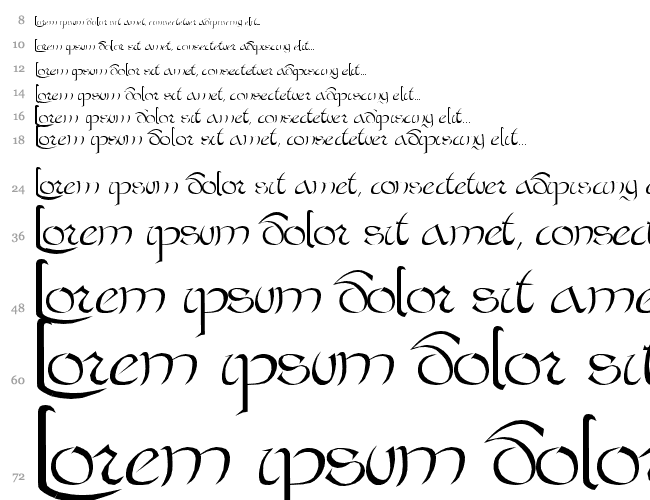 8 Lorem ipsum dolor sit amet, consectetuer adipiscing elit...
10 Lorem ipsum dolor sit amet, consectetuer adipiscing elit...
12 Lorem ipsum dolor sit amet, consectetuer adipiscing elit...
14 Lorem ipsum dolor sit amet, consectetuer adipiscing elit...
16 Lorem ipsum dolor sit amet, consectetuer adipiscing elit...
18 Lorem ipsum dolor sit amet, consectetuer adipiscing elit...
24 Lorem ipsum dolor sit amet, consectetuer adipiscing e
36 Lorem ipsum dolor sit amet, consect
48 Lorem ipsum dolor sit ame
60 Lorem ipsum dolor sit
72 Lorem ipsum dolor